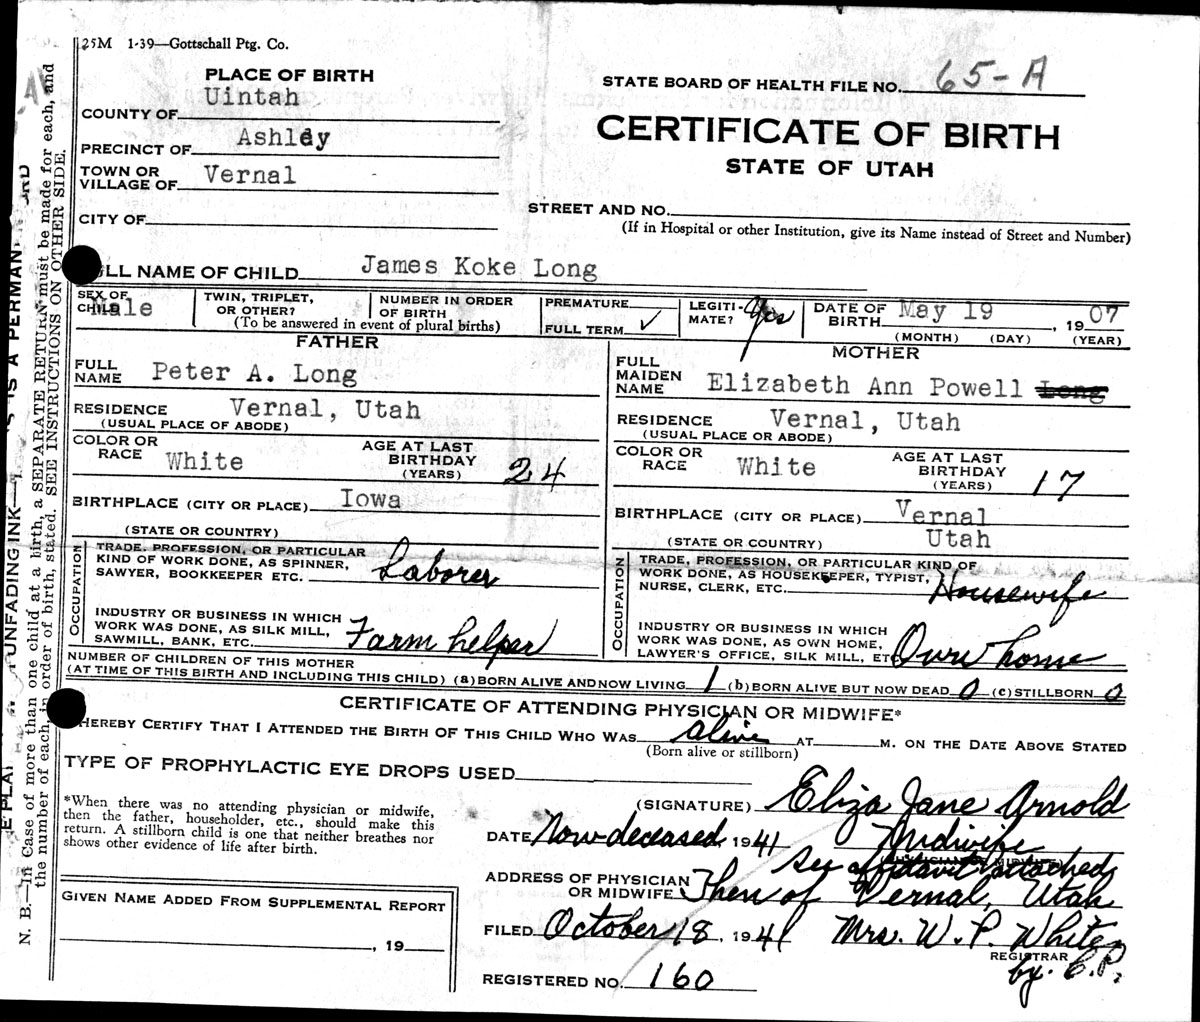 25M 1-39—Gottschall Ptg. Co.
PLACE OF BIRTH
COUNTY OF Uintah
PRECINCT OF Ashley
TOWN OR VILLAGE OF Vernal
CITY OF
STATE BOARD OF HEALTH FILE NO. 65-A
CERTIFICATE OF BIRTH
STATE OF UTAH
STREET AND NO.
(If in Hospital or other Institution, give its Name instead of Street and Number)
ULL NAME OF CHILD James Koke Long
SEX OF CHILD Male
TWIN, TRIPLET, OR OTHER?
NUMBER IN ORDER OF BIRTH
(To be answered in event of plural births)
PREMATURE
FULL TERM ✓
LEGITI-MATE? Yes
DATE OF BIRTH May 19, 1907
(MONTH) (DAY) (YEAR)
FATHER
FULL NAME Peter A. Long
RESIDENCE Vernal, Utah
(USUAL PLACE OF ABODE)
COLOR OR RACE White
AGE AT LAST BIRTHDAY (YEARS) 24
BIRTHPLACE (CITY OR PLACE) Iowa
(STATE OR COUNTRY)
OCCUPATION
TRADE, PROFESSION, OR PARTICULAR
KIND OF WORK DONE, AS SPINNER,
SAWYER, BOOKKEEPER ETC. Laborer
INDUSTRY OR BUSINESS IN WHICH
WORK WAS DONE, AS SILK MILL,
SAWMILL, BANK, ETC. Farm helper
MOTHER
FULL MAIDEN NAME Elizabeth Ann Powell Long
RESIDENCE Vernal, Utah
(USUAL PLACE OR ABODE)
COLOR OR RACE White
AGE AT LAST BIRTHDAY (YEARS) 17
BIRTHPLACE (CITY OR PLACE) Vernal
(STATE OR COUNTRY) Utah
OCCUPATION
TRADE, PROFESSION, OR PARTICULAR KIND OF
WORK DONE, AS HOUSEKEEPER, TYPIST,
NURSE, CLERK, ETC. Housewife
INDUSTRY OR BUSINESS IN WHICH
WORK WAS DONE, AS OWN HOME,
LAWYER'S OFFICE, SILK MILL, ETC Own home
NUMBER OF CHILDREN OF THIS MOTHER
(AT TIME OF THIS BIRTH AND INCLUDING THIS CHILD) (a) BORN ALIVE AND NOW LIVING 1 (b) BORN ALIVE BUT NOW DEAD 0 (c) STILLBORN 0
CERTIFICATE OF ATTENDING PHYSICIAN OR MIDWIFE*
HEREBY CERTIFY THAT I ATTENDED THE BIRTH OF THIS CHILD WHO WAS alive AT M. ON THE DATE ABOVE STATED
(Born alive or stillborn)
TYPE OF PROPHYLACTIC EYE DROPS USED
*When there was no attending physician or midwife,
then the father, householder, etc., should make this
return. A stillborn child is one that neither breathes nor
shows other evidence of life after birth.
(SIGNATURE) Eliza Jane Arnold
DATE Now deceased, 1941 Midwife
(PHYSICIAN OR MIDWIFE)
See affidavit attached
ADDRESS OF PHYSICIAN OR MIDWIFE Then of Vernal, Utah
FILED October 18, 1941 Mrs. W. P. White
REGISTRAR
by. C.P.
REGISTERED NO. 160
GIVEN NAME ADDED FROM SUPPLEMENTAL REPORT
, 19
UNFADING INK— IS A PERMAN
N. B.—In Case of more than one child at a birth, a SEPARATE RETURN must be made for each, and
the number of each, in order of birth, stated. SEE INSTRUCTIONS ON OTHER SIDE.